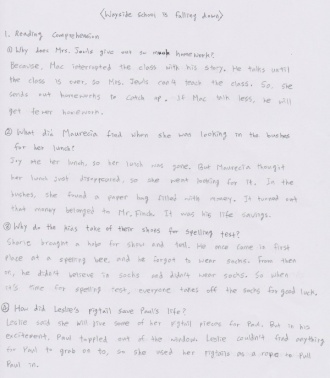 <Wayside School is falling down>
1. Reading Comprehension
① Why does Mrs. Jewls give out so much homework?
Because, Mac interrupted the class with his story. He talks until
the class is over, so Mrs. Jewls can't teach the class. So, she
sends out homeworks to catch up. If Mac talk less, he will
get fewer homework.
② What did Maurecia find when she was looking in the bushes
for her lunch?
Joy ate her lunch, so her lunch was gone. But Maurecia thought
her lunch just disappeared, so she went looking for it. In the
bushes, she found a paper bag filled with money. It turned out
that money belonged to Mr. Finch. It was his life savings.
③ Why do the kids take off their shoes for spelling test?
Sharie brought a hobo for show and tell. He once came in first
place at a spelling bee, and he forgot to wear socks. From then
on, he didn't believe in socks and didn't wear socks. So when
it's time for spelling test, everyone takes off the socks for good luck.
④ How did Leslie's pigtail save Paul's life?
Leslie said she will give some of her pigtail pieces for Paul. But in his
excitement, Paul toppled out of the window. Leslie couldn't find anything
for Paul to grab on to, so she used her pigtails as a rope to pull
Paul in.